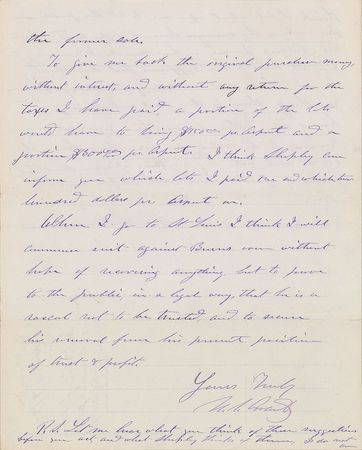 the former sale.
To give me back the original purchase money,
without interest, and without any return for the
taxes I have paid, a portion of the lots
would have to bring $150 00 pr Arpent and a
portion $300 00 pr Arpent. I think Shipley can
inform you which lots I paid one and which two
hundred dollars per Arpent on.
When I go to St Louis I think I will
commence suit against Burns even without
hope of recovering anything but to prove
to the public, in a legal way, that he is a
rascal not to be trusted, and to secure
his removal from his present position
of trust & profit.
Yours Truly
U. S. Grant
P.S. Let me hear what you think of these suggestions
before you act, and what Shipley thinks of them. I do not